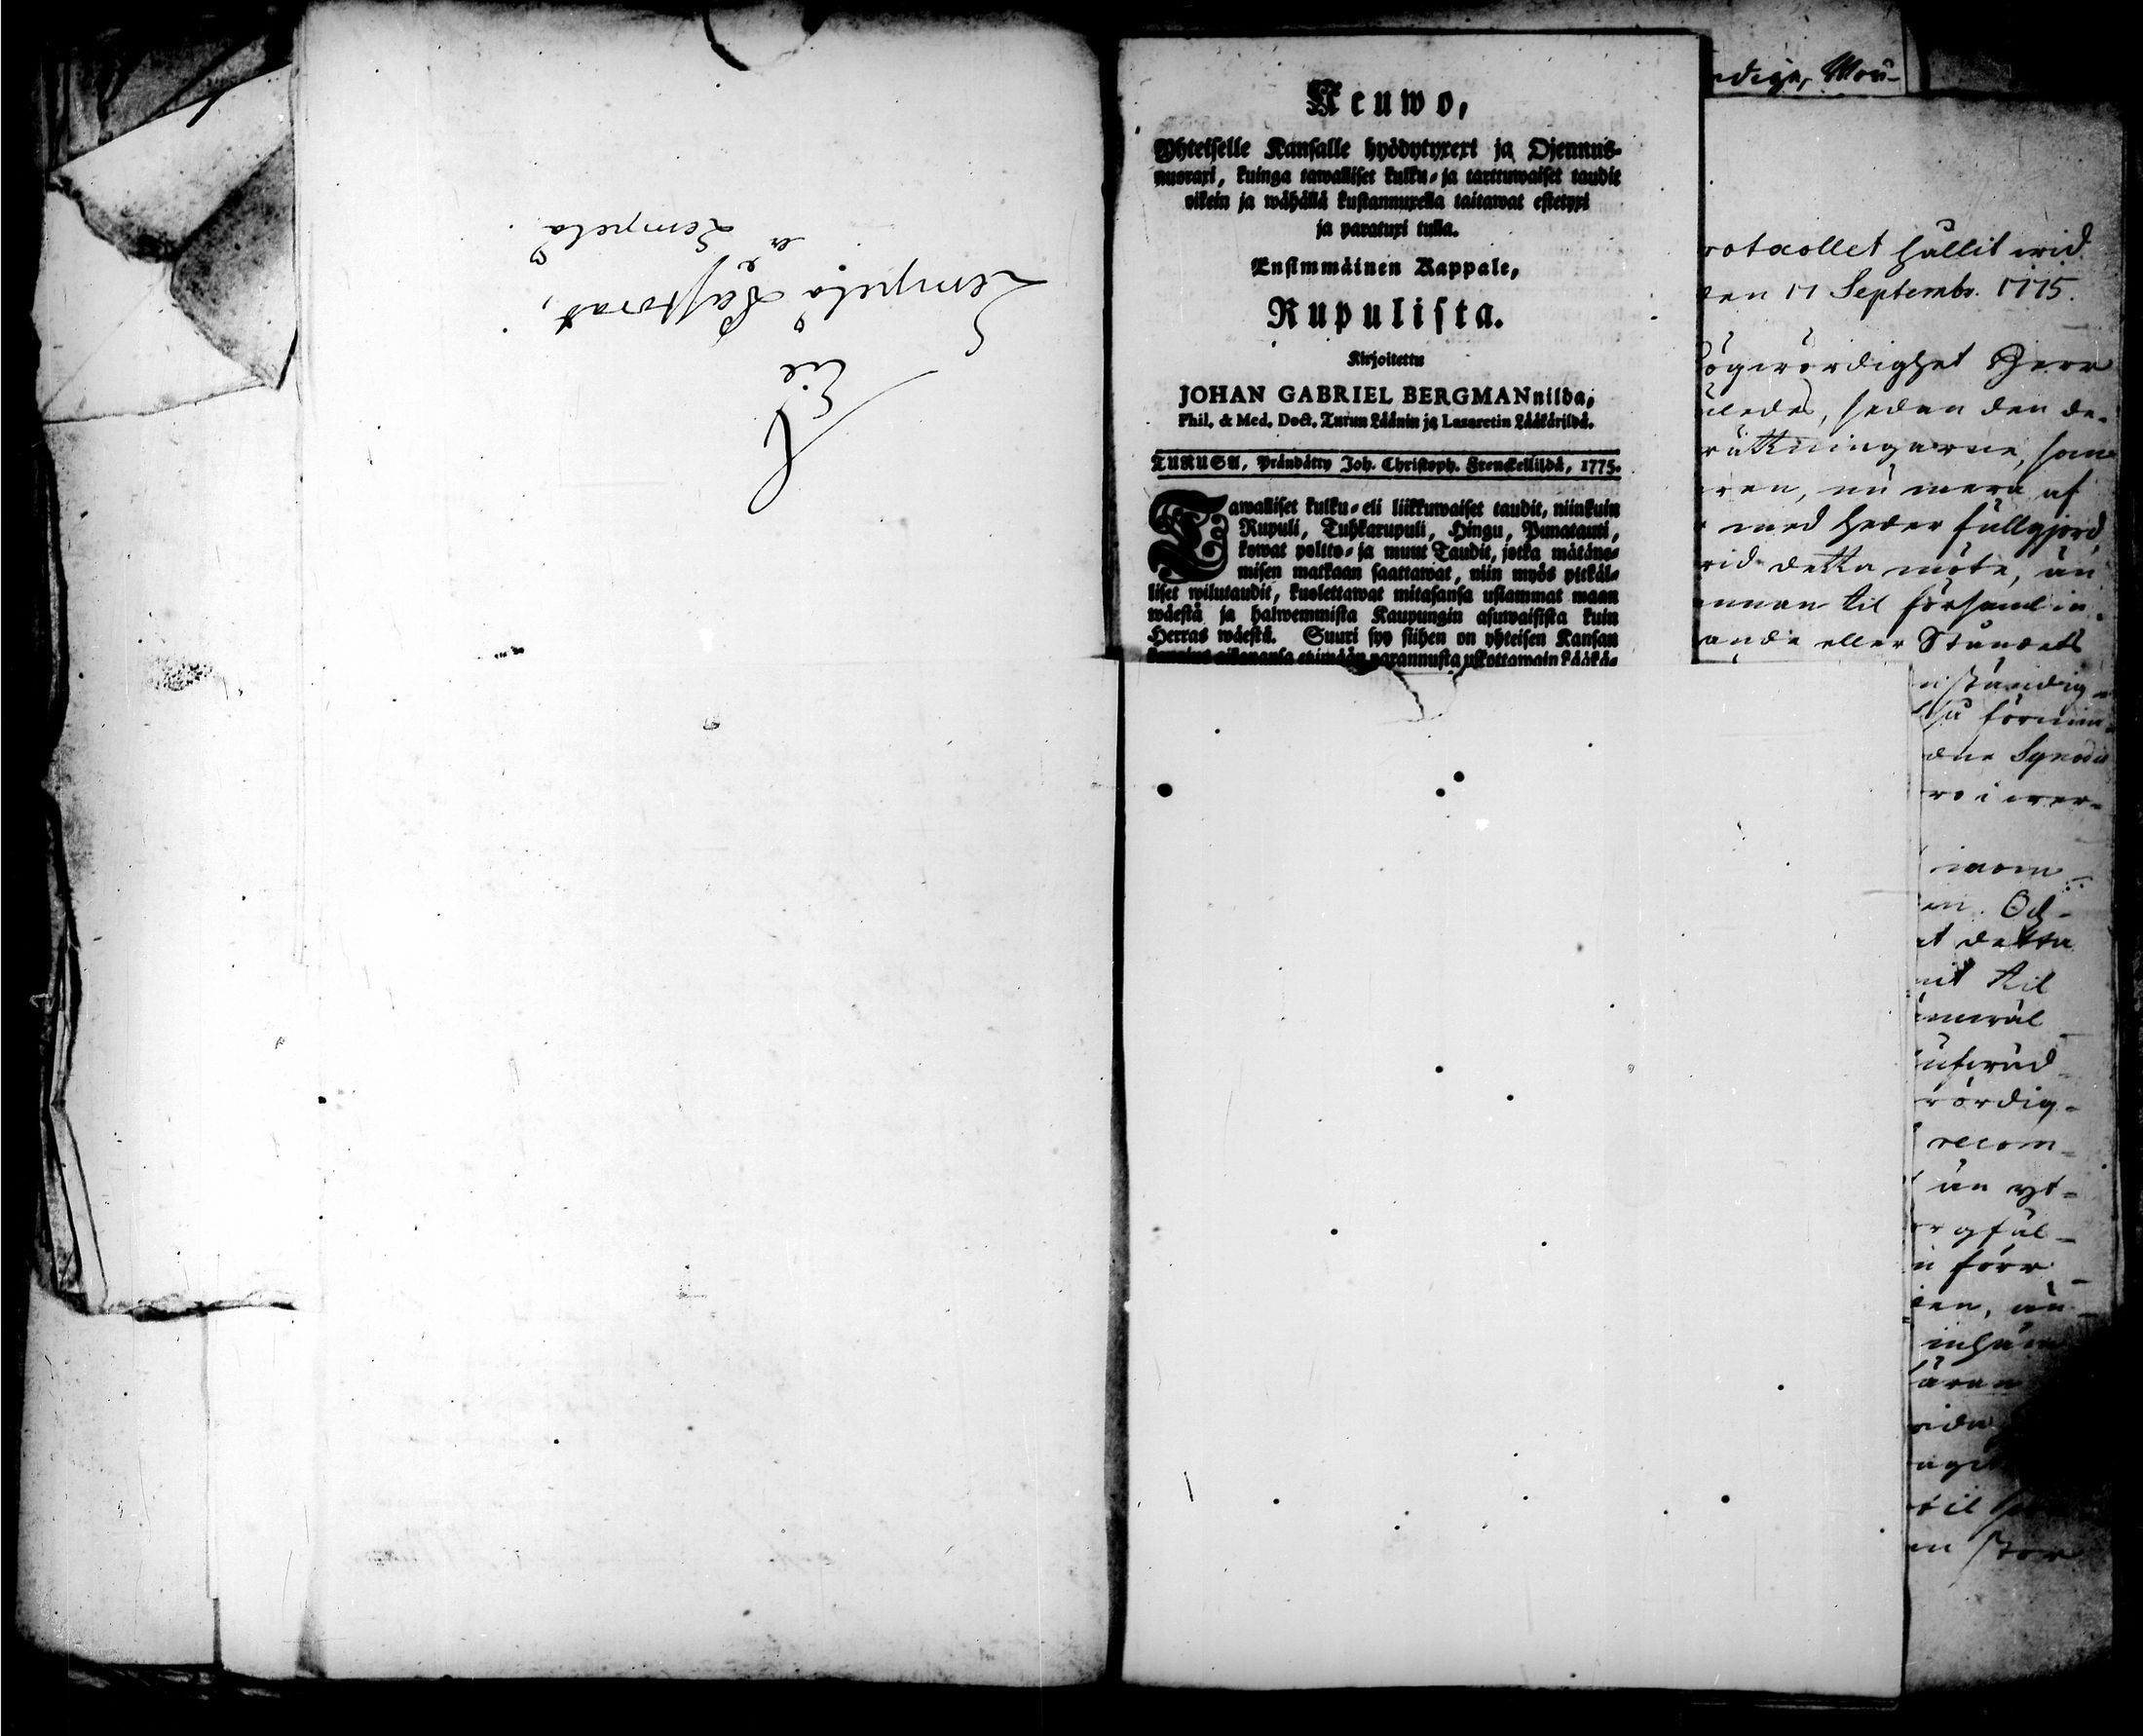 Til
Lempälä Pastorat,
Lempelä
Neuwo,
Yhteiselle Kansalle hyödytyxexi ja Ojennus-
nuoraxi, kuinga tawalliset kulku- ja tarttuwaiset taudit
oikein ja wähällä kustannuxella taitawat estetyxi
ja paratuxi tulla.
Ensimmäinen Kappale,
Rupulista.
Kirjoitettu
JOHAN GABRIEL BERGMANnilda,
Phil. & Med. Doct. Turun Läänin ja Lazaretin Lääkärildä.
TURUSA, Prändätty Joh. Christoph. Frenckellildä, 1775.
Tawalliset kulku- eli liikkuwaiset taudit, niinkuin
Rupuli, Tuhkarupuli, Hingu, Punatauti,
kowat poltto- ja muut Taudit, jotka mätäne-
misen matkaan saattawat, niin myös pitkäl-
liset wilutaudit, kuolettawat mitasansa usiammat maan
wäestä ja halwemmista Kaupungin asuwaisista kuin
Herras wäestä. Suuri syy siihen on yhteisen Kansan
parannusta uskottamain Lääkä-
Mou-
rotocollet hållit wid
den 17 Septembr. 1775.
ögwördighet Herr
ledes, sedan den de-
rättningarne, som
ren, nu mera af
med heder fullgjord
wid detta möte, än
annan til församlin
ande eller Ståndets
ständig
förmin
dne Synodi
ro i wer-
inom
en. Och
at detta
nit til
rördig-
recom-
än yt-
n förr
den, än
til
en stor